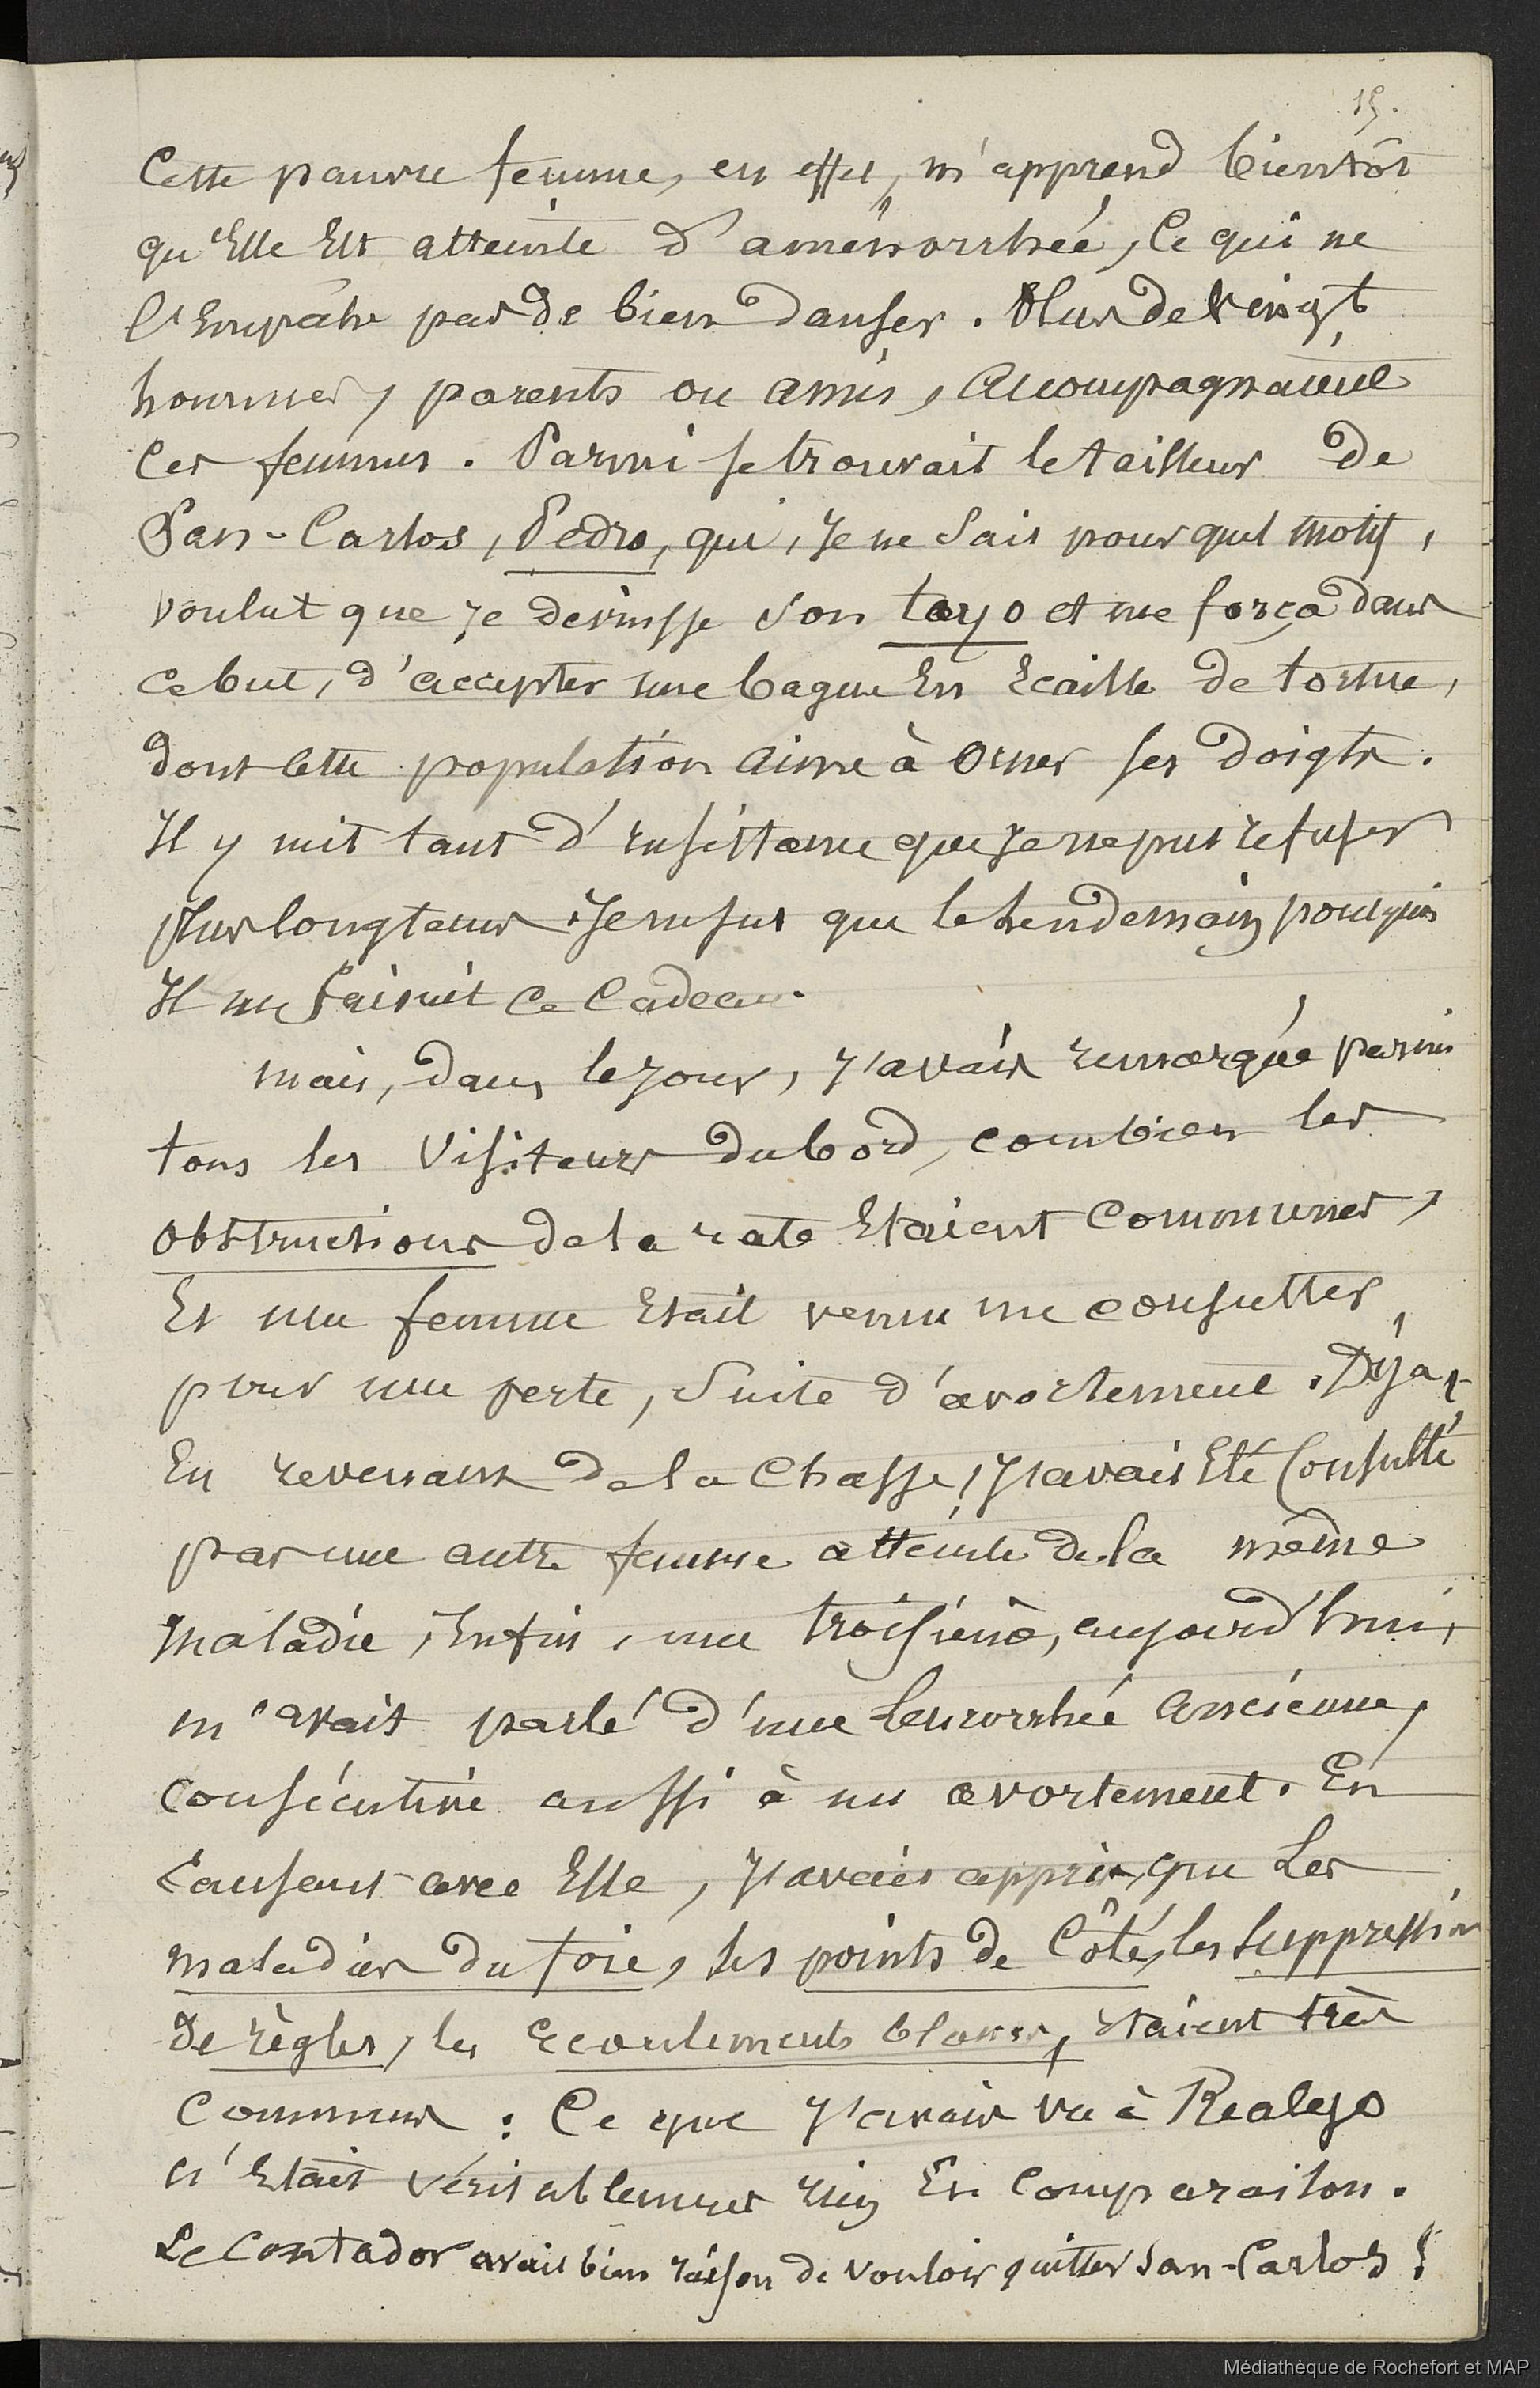 15.
Cette pauvre femme, en effet, m'apprend bientôt
qu'Elle Est atteinte d'aménorrhée, Ce qui ne
l'Empêche pas de bien danser. Plus de vingt
hommes, parents ou amis, accompagnaient
Ces femmes. Parmi se trouvait le tailleur de
San-Carlos, Pedro, qui, Je ne Sais pour quel motif,
voulut que je devinsse Son tayo et me força dans
ce but, d'accepter une bague En Ecaille de tortue,
dont cette population aime à orner ses doigts.
Il y mit tant d'insistance que Je ne pus refuser
plus longtems. Je ne sus que le lendemain pourquoi
Il me faisait Ce Cadeau.
mais, dans le jour, j'avais remarqué parmi
tous les visiteurs du bord, combien les
obstructions de la rate Etaient Communes,
Et une femme Etait venue me consulter,
pour une perte, Suite d'avortement. Déjà,
En revenant de la Chasse, j'avais Eté Consulté
par une autre femme atteinte de la même
maladie, Enfin, une troisième, aujourd'hui,
m'avait parlé d'une leucorrhée ancienne,
consécutive aussi à un avortement. En
Causant avec Elle, j'avais appris que Les
maladies du foie, les points de Côté, les Suppression
de règles, les Ecoulements blancs, étaient très
Communs : Ce que j'avais vu à Realejo
n'Etait véritablement rien En Comparaison.
Le Contador avait bien raison de vouloir quitter San-Carlos !
Médiathèque de Rochefort et MAP